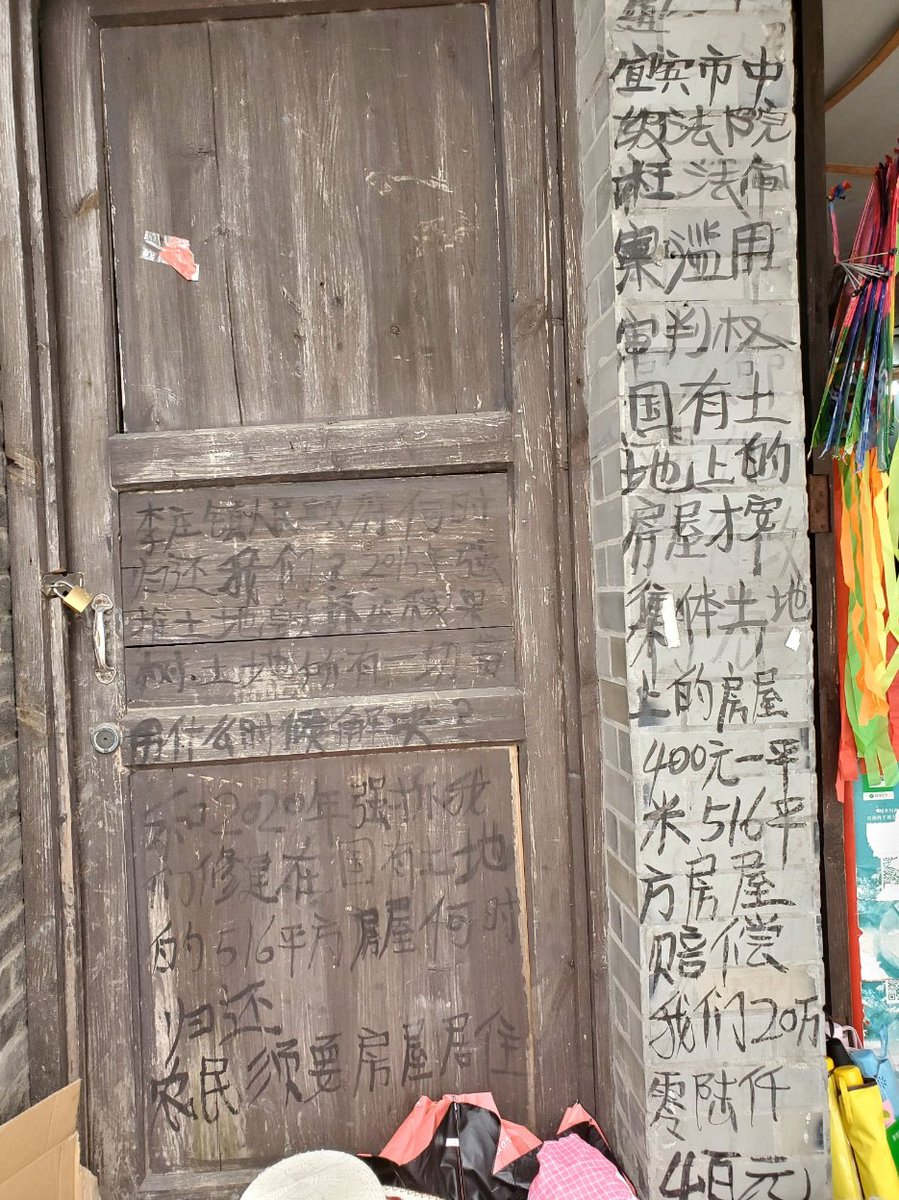 李庄镇人民政府何时
归还我们?2015年强
抢土地毁坏庄稼果
树.土地所有一切费
用什么时候解决?
和2020年强抓我
们修建在国有土地
的516平方房屋何时
归还
农民须要房屋居住
宜宾市中
级法院
枉法审
案滥用
审判权
国有土
地上的
房屋才按
集体土地
上的房屋
400元一平
米516平
方房屋
赔偿
我们20万
零陆仟
4百元